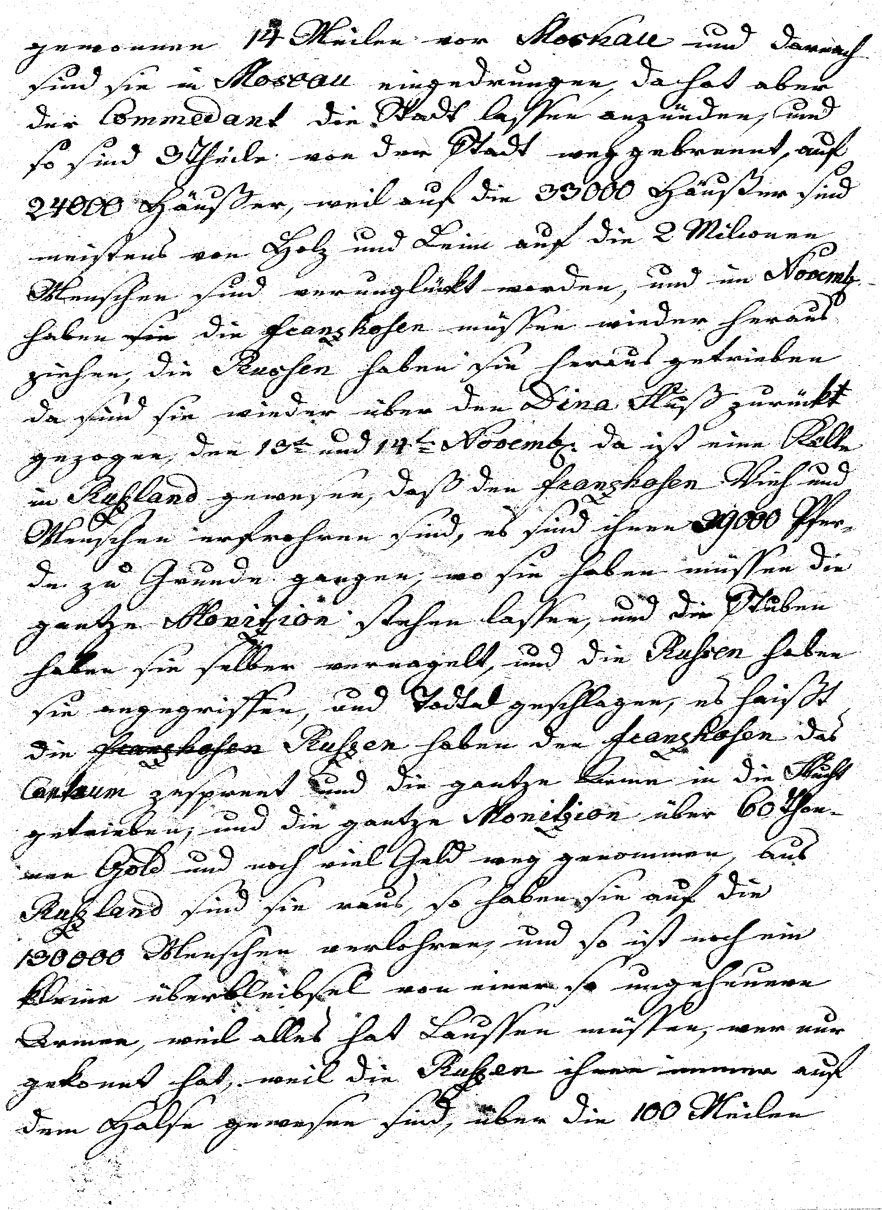 gewonnen 14 Meilen vor Moskau und darnach
sind sie in Moscau eingedrungen, da hat aber
der Commedant die Stadt lassen anzünden, und
so sind 3 Theile von der Stadt weg gebrennt, auf
24000 Häußer, weil auf die 33000 Häußer sind
meistens von Holz und Leim auf die 2 Milionen
Menschen sind verunglückt worden, und im Novemb.
haben sie die franzhosen müssen wieder heraus
ziehen, die Russen haben sie heraus getrieben
da sind sie wieder über den Dina Fluß zurückt
gezogen, den 13te und 14te Novemb: da ist eine Kelte
in Rußland gewesen, daß den franzhosen Vieh und
Menschen erfrohren sind, es sind ihnen 39000 Pfer-
de zu Grunde gangen, wo sie haben müssen die
gantze Monizion stehen lassen, und die Stuben
haben sie selber vernagelt, und die Russen haben
sie angegriffen, und Todtal geschlagen, es haißt
die franzhosen Rußen haben den franzhosen das
Centrum zesprent und die gantze Armee in die Flucht
getrieben, und die gantze Monizion über 60 Thon-
nen Gold und noch viel Geld weg genommen, aus
Rußland sind sie raus, so haben sie auf die
130000 Menschen verlohren, und so ist noch ein
kleine überbleibsel von einer so ungeheuere
Armee, weil alles hat Laussen müssen, wer nur
gekonnt hat, weil die Rußen ihnen immer auf
dem Halse gewesen sind, über die 100 Meilen